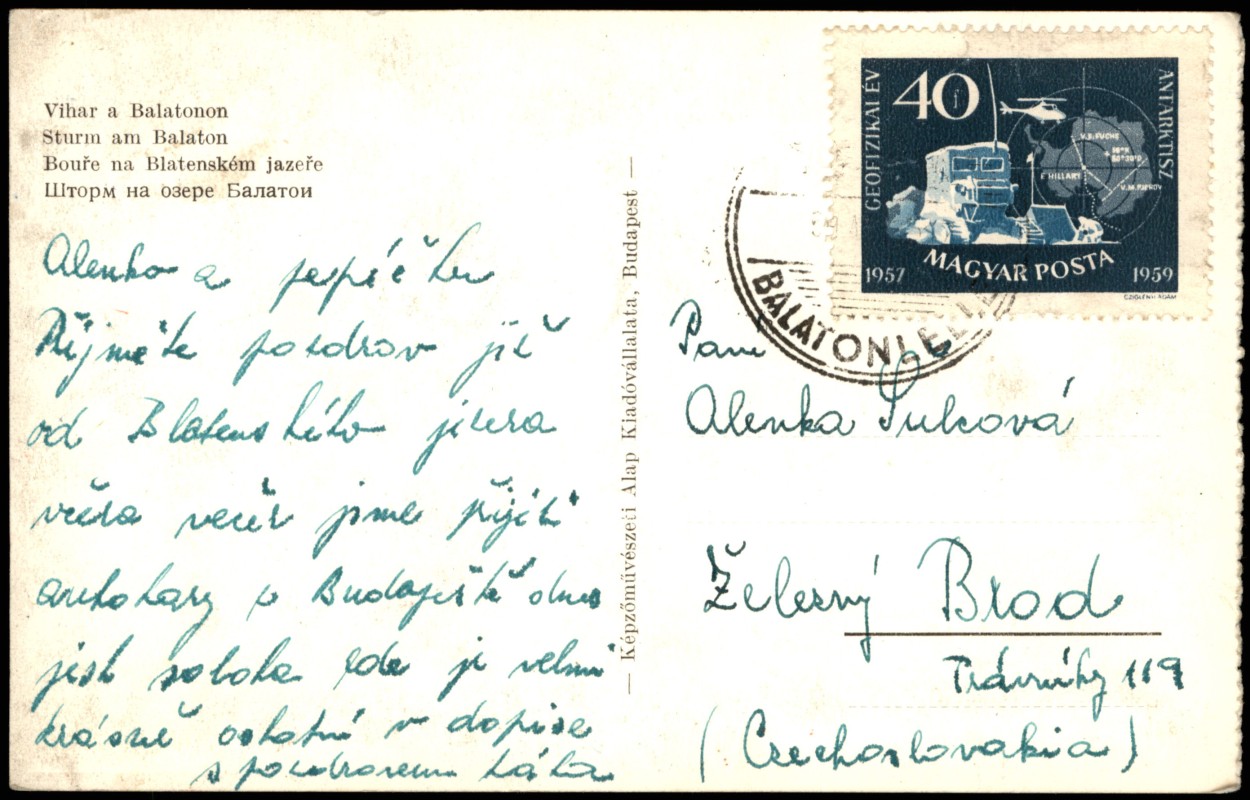 Vihar a Balatonon
Sturm am Balaton
Bouře na Blatenském jazeře
Шторм на озере Балатои
Alenko a pepíčku
Přijměte pozdrav již
od Blatenského jezera
včera večer jsme přijeli
autokary v Budapeště dnes
jest sobota zde je velmi
krásně ostatní v dopise
s pozdravem táta
— Képzőművészeti Alap Kiadóvállalata, Budapest —
GEOFIZIKAI ÉV
40
ANTARKTISZ
V.B.FUCHS
E HILLARY
MAGYAR POSTA
1957
1959
BALATONLELLE
Paní
Alenka Sulcová
Železný Brod
Trávníky 119
(Czechoslovakia)